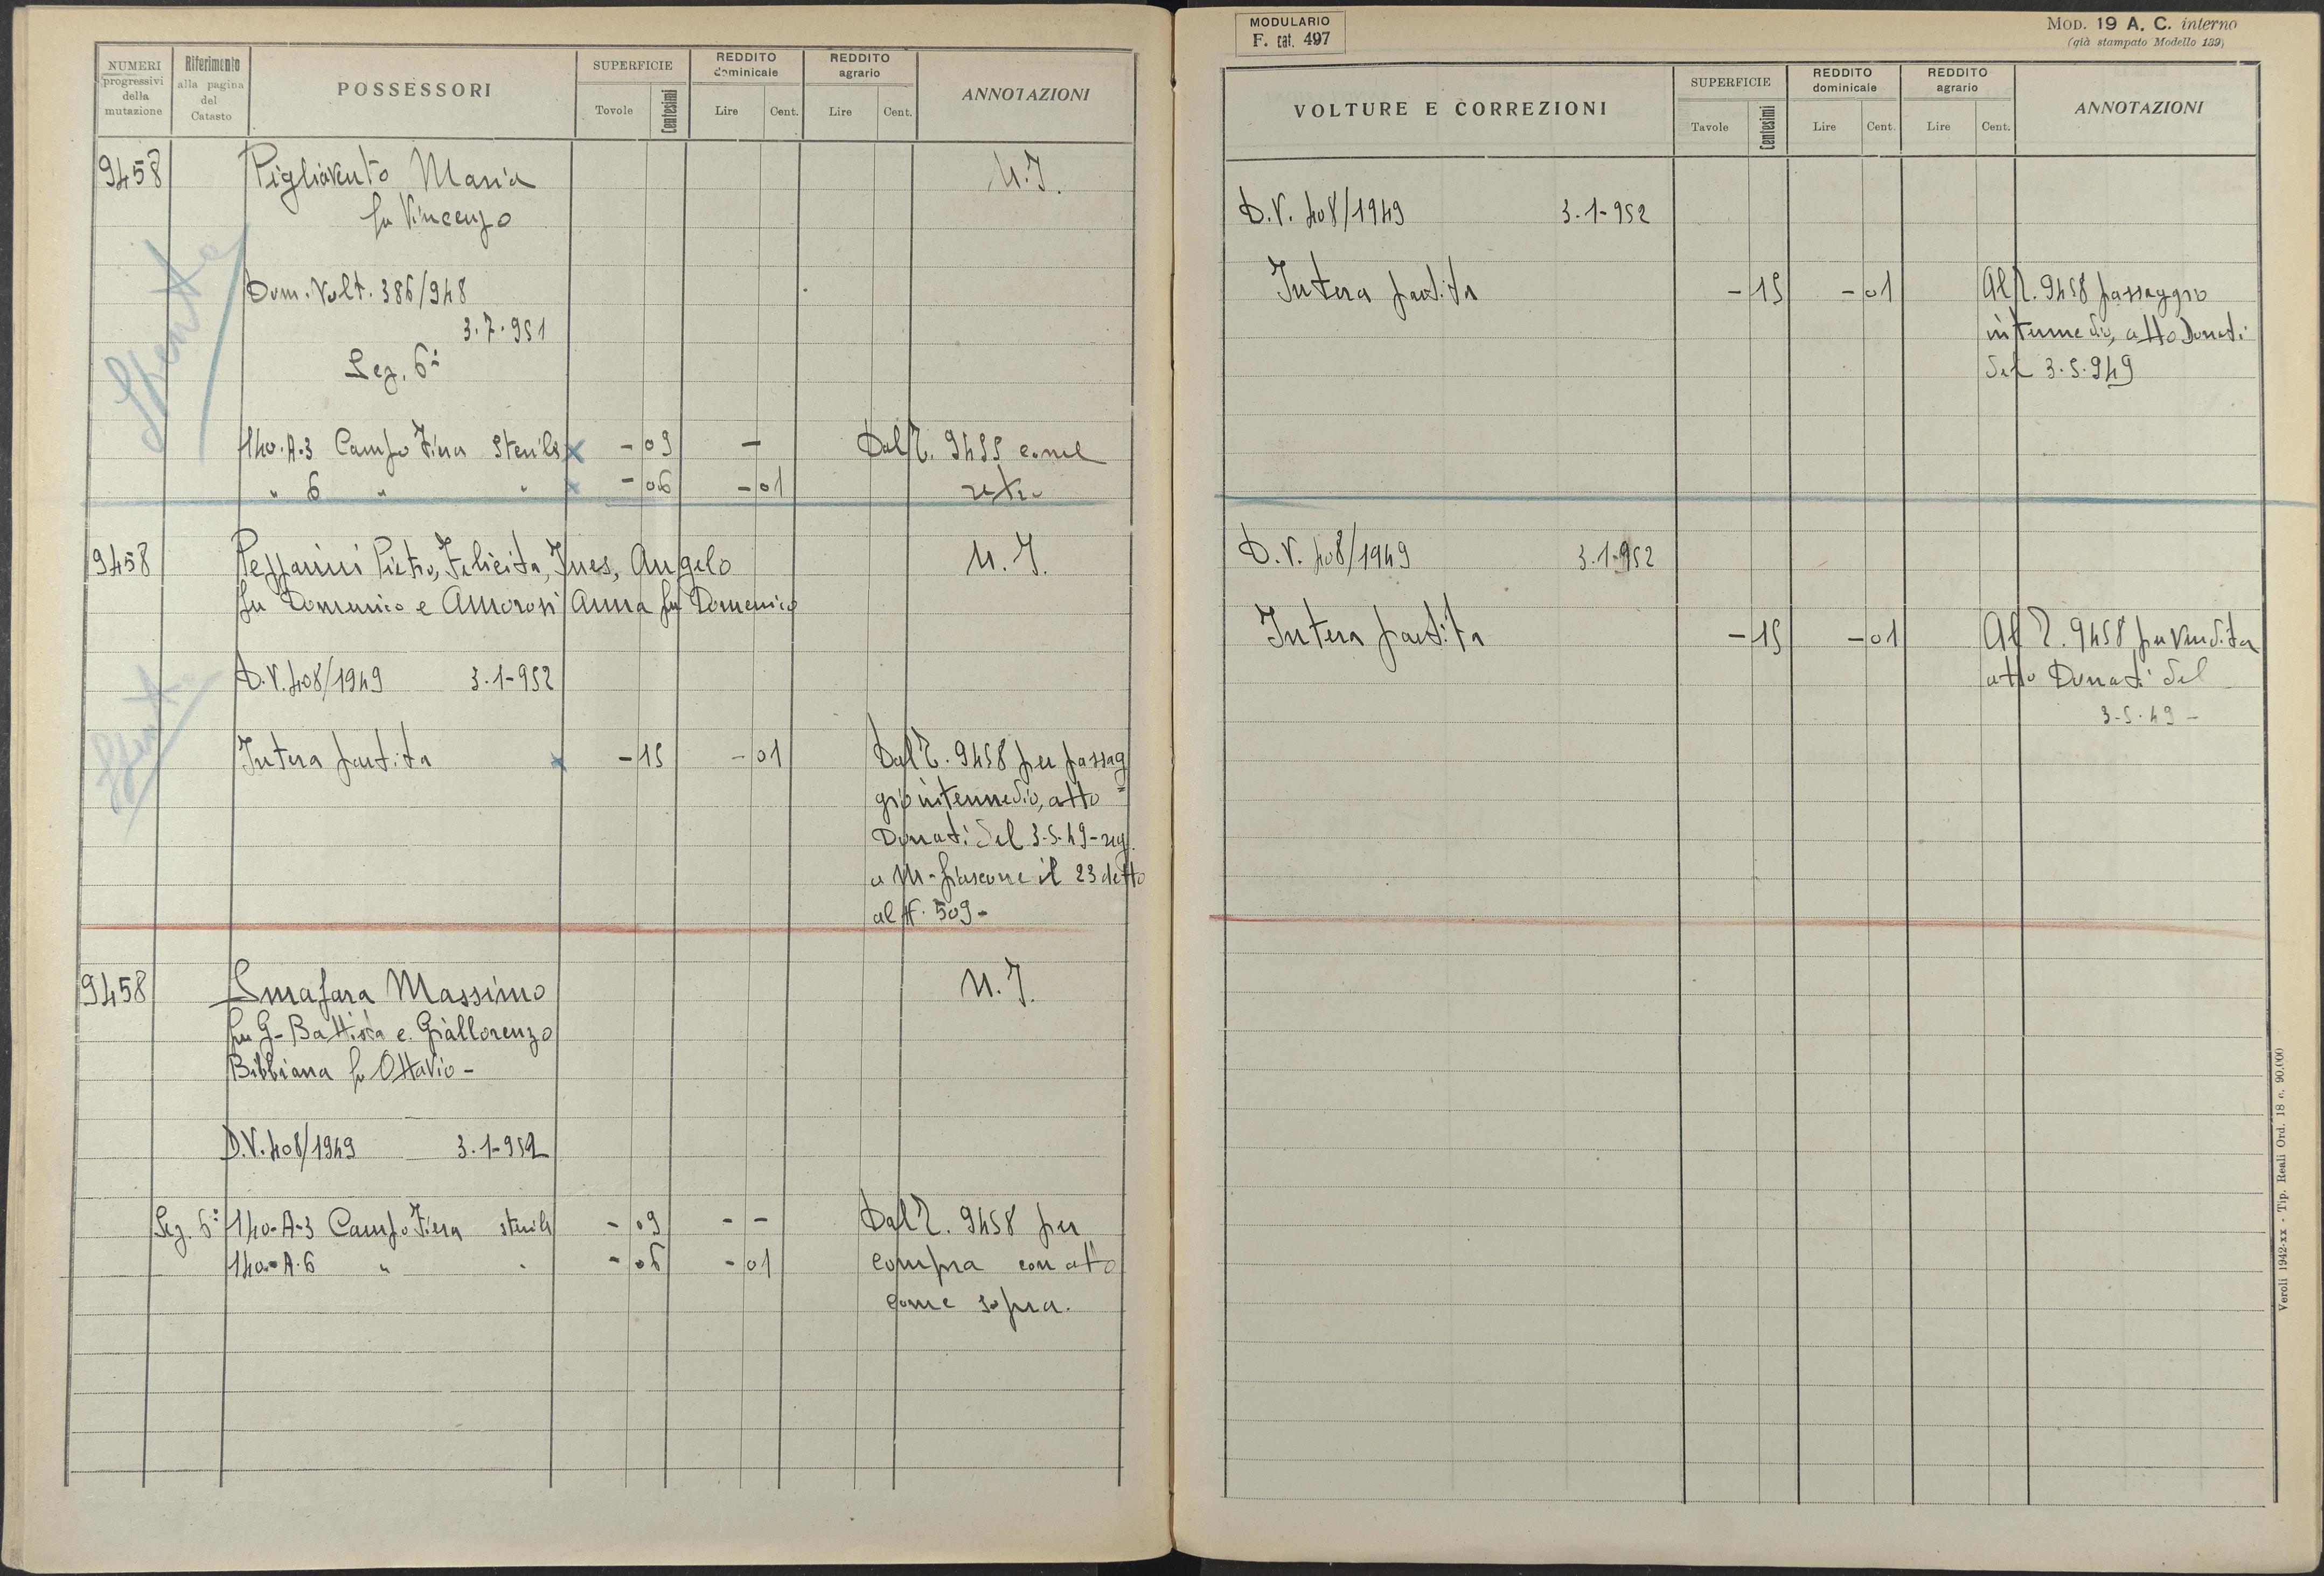 NUMERI progressivi della mutazione
Riferimento alla pagina del Catasto
POSSESSORI
SUPERFICIE
Tovole
Centesimi
REDDITO dominicale
Lire
Cent.
REDDITO agrario
Lire
Cent.
ANNOTAZIONI
9458
Pigliavento Maria
U.I.
fu Vincenzo
Spenta
Dom. Volt. 386/948
3.7.951
Sez. 6ª
140.A.3 Campo Fiera sterile x - 09 - Dal R. 9455 come
" 6 " " x - 06 - 01 retro
9458
Pezzarini Pietro, Felicita, Ines, Angelo
U.I.
fu Domenico e Amorosi Anna fu Domenico
Spenta
D.V. 408/1949 3.1-952
Intera partita x - 15 - 01 Dal R. 9458 per passag
gio intermedio, atto
Donati del 3.5.49 - reg.
a M-fiascone il 23 detto
al N. 509 -
9458
Smafara Massimo
U.I.
fu G-Battista e Giallorenzo
Bibbiana fu Ottavio -
D.V. 408/1949 3.1-952
Sez. 6ª 140-A-3 Campo Fiera sterile - 09 - - Dal R. 9458 per
140-A.6 " " - 06 - 01 compra con atto
come sopra.
MODULARIO
F. cat. 497
MOD. 19 A. C. interno
(già stampato Modello 139)
VOLTURE E CORREZIONI
SUPERFICIE
Tavole
Centesimi
REDDITO dominicale
Lire
Cent.
REDDITO agrario
Lire
Cent.
ANNOTAZIONI
D.V. 408/1949 3.1-952
Intera partita - 15 - 01 Al R. 9458 passaggio
intermedio, atto Donati
del 3.5.949
D.V. 408/1949 3.1-952
Intera partita - 15 - 01 Al R. 9458 per vendita
atto Donati del
3-5.49 -
Veroli 1942-XX - Tip. Reali Ord. 18 c. 90.000